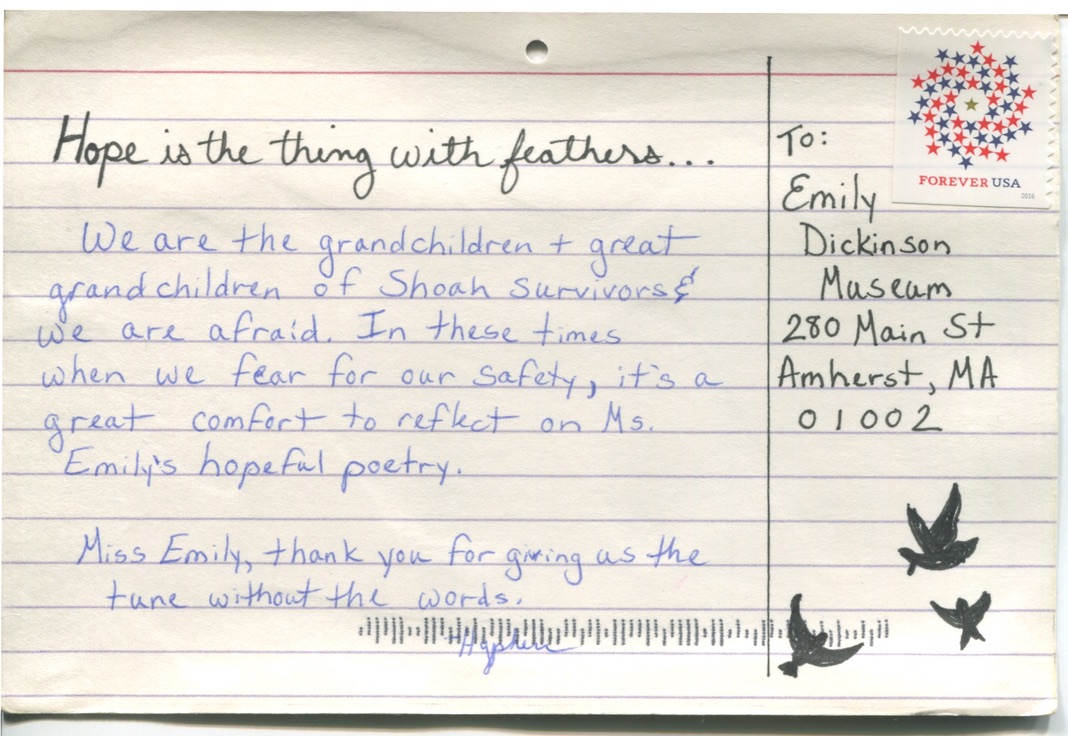 Hope is the thing with feathers...
We are the grandchildren + great
grandchildren of Shoah survivors &
we are afraid. In these times
when we fear for our safety, it's a
great comfort to reflect on Ms.
Emily's hopeful poetry.
Miss Emily, thank you for giving us the
tune without the words.
To:
Emily
Dickinson
Museum
280 Main St
Amherst, MA
01002
FOREVER USA
2016